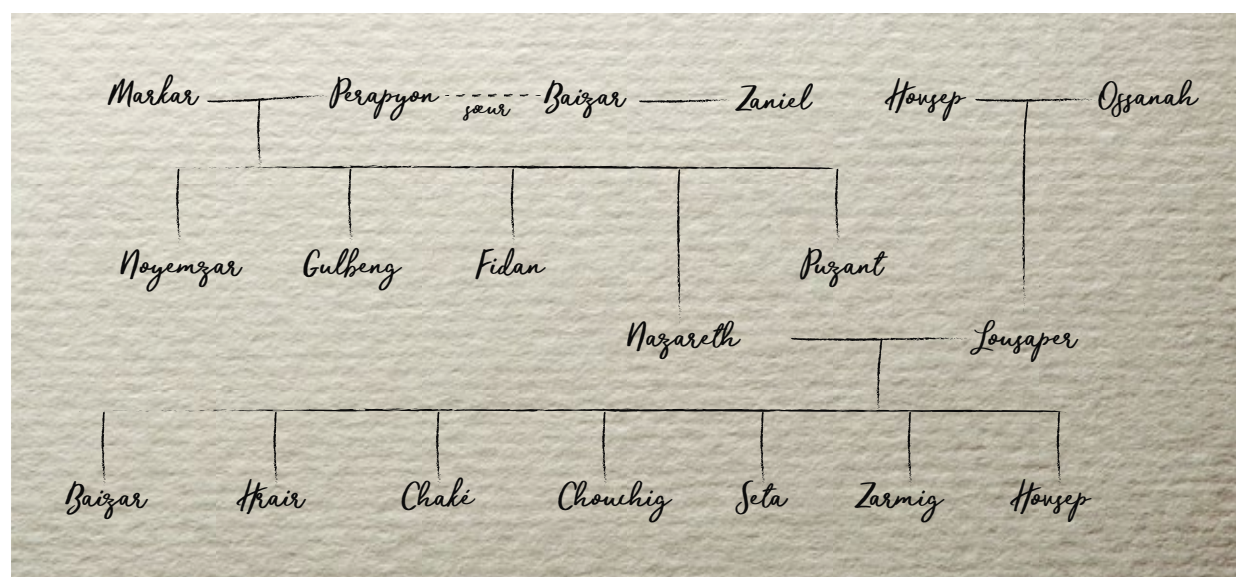 Markar Perapyon sœur Baizar Zaniel Hovsep Ossanah
Noyemzar Gulbeng Fidan Puzant
Nazareth Lousaper
Baizar Hrair Chaké Chouchig Seta Zarmig Hovsep